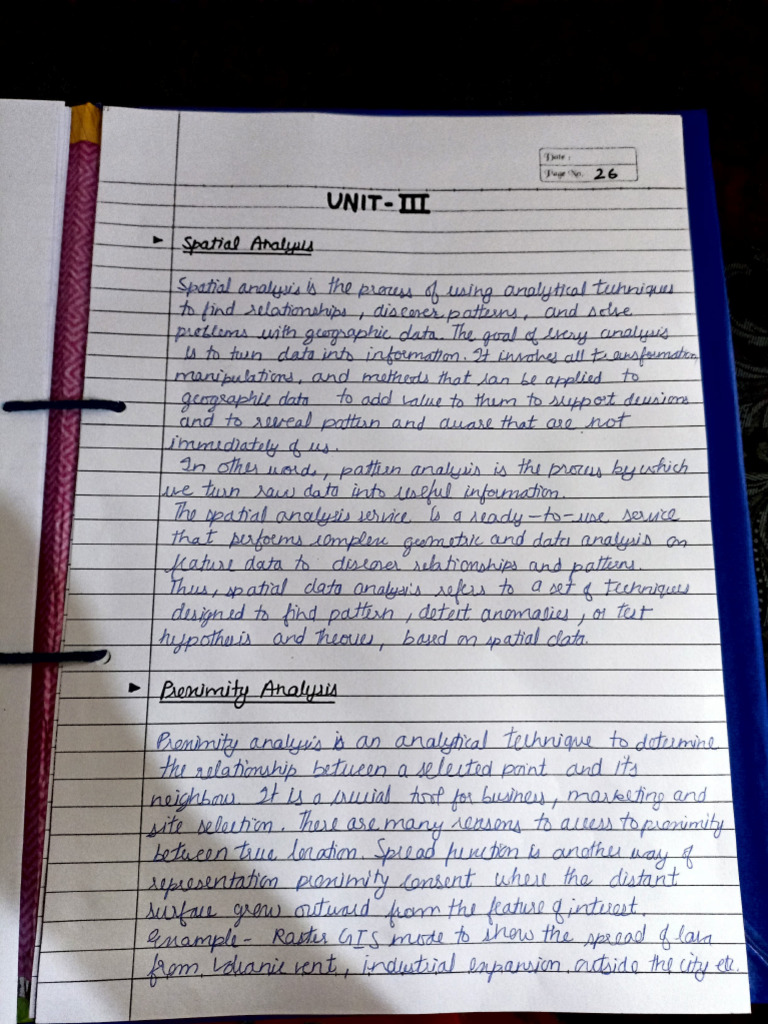 Date :
Page No. 26
UNIT-III
► Spatial Analysis
Spatial analysis is the process of using analytical techniques
to find relationships, discover patterns, and solve
problems with geographic data. The goal of every analysis
is to turn data into information. It involves all transformation,
manipulations, and methods that can be applied to
geographic data to add value to them to support decisions
and to reveal pattern and aware that are not
immediately of us.
In other words, pattern analysis is the process by which
we turn raw data into useful information.
The spatial analysis service is a ready-to-use service
that performs complex geometric and data analysis on
feature data to discover relationships and patterns.
Thus, spatial data analysis refers to a set of techniques
designed to find pattern, detect anomalies, or test
hypothesis and theories, based on spatial data.
► Proximity Analysis
Proximity analysis is an analytical technique to determine
the relationship between a selected point and its
neighbour. It is a crucial tool for business, marketing and
site selection. There are many reasons to access to proximity
between true location. Spread function is another way of
representation proximity consent where the distant
surface grow outward from the feature of interest.
Example- Raster GIS mode to show the spread of lava
from volcanic vent, industrial expansion outside the city etc.